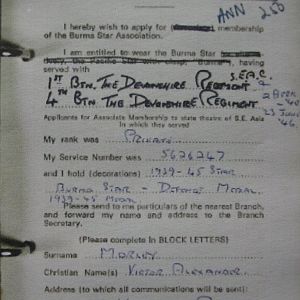 ANN 250
I hereby wish to apply for membership
of the Burma Star Association.
I am entitled to wear the Burma Star
having
served with
S.E.A.C.
1ST BTN. THE DEVONSHIRE REGIMENT
4TH BTN THE DEVONSHIRE REGIMENT
Applicants for Associate Membership to state theatre of S.E. Asia
in which they served
My rank was PRIVATE
My Service Number was 5626247
and I hold (decorations) 1939-45 STAR
BURMA STAR - DEFENCE MEDAL
1939-45 MEDAL
Please send to me particulars of the nearest Branch,
and forward my name and address to the Branch
Secretary.
(Please complete in BLOCK LETTERS)
Surname MORLEY
Christian Name(s) VICTOR ALEXANDER
Address (to which all communications will be sent)